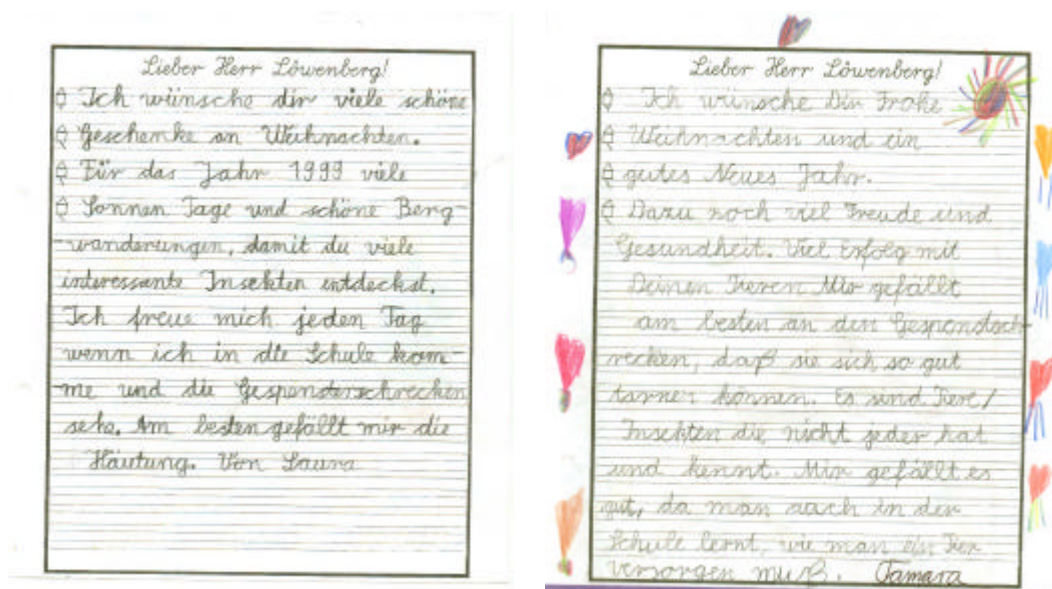 Lieber Herr Löwenberg!
Ich wünsche dir viele schöne
Geschenke an Weihnachten.
Für das Jahr 1999 viele
Sonnen Tage und schöne Berg-
wanderungen, damit du viele
interessante Insekten entdeckst.
Ich freue mich jeden Tag
wenn ich in die Schule kom-
me und die Gespensterschrecken
sehe. Am besten gefällt mir die
Häutung. Von Laura
Lieber Herr Löwenberg!
Ich wünsche Dir Frohe
Weihnachten und ein
gutes Neues Jahr.
Dazu noch viel Freude und
Gesundheit. Viel Erfolg mit
Deinen Tieren Mir gefällt
am besten an den
recken, daß sie sich so gut
tarnen können. Es sind Tiere/
Insekten die nicht jeder hat
und kennt. Mir gefällt es
gut, da man auch in der
Schule lernt, wie man ein Tier
versorgen muß. Tamara